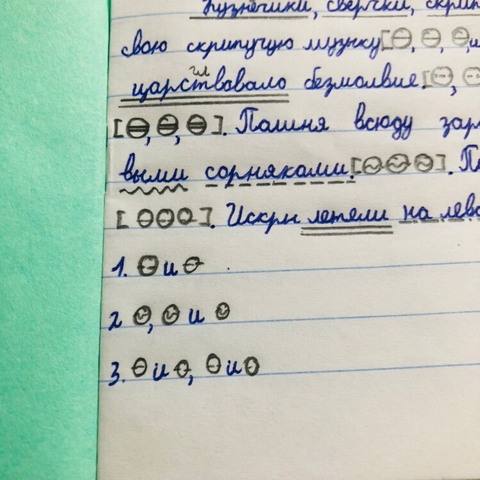 Кузнечики, сверчки, скрип
свою скрипучую музыку[⊖, ⊖, ⊖,и
царствовало безмолвие.[⊖, 
[⊖, ⊖, ⊖]. Пашня всюду зар
выми сорняками.[⊖⊖⊖]. П
[⊖⊖⊖]. Искры летели на лево
1. ⊖ и ⊖ .
2 ⊖, ⊖ и ⊖
3. ⊖ и ⊖, ⊖ и ⊖